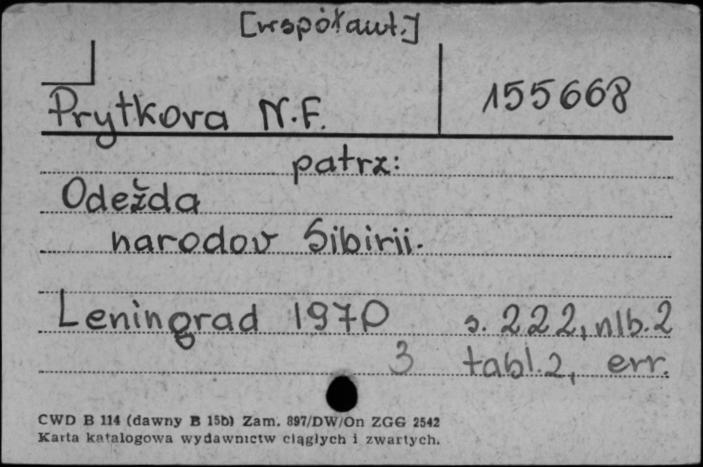 [współaut.]
Prytkova N.F.
155668
patrz:
Odežda
narodov Sibirii.
Leningrad 1970 s. 222, nlb. 2
3 tabl. 2, err.
CWD B 114 (dawny B 15b) Zam. 897/DW/On ZGG 2542
Karta katalogowa wydawnictw ciągłych i zwartych.